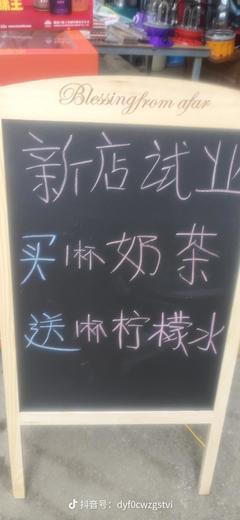 Blessing from afar
新店试业
买1杯奶茶
送1杯柠檬水
抖音号：dyf0cwzgstvi